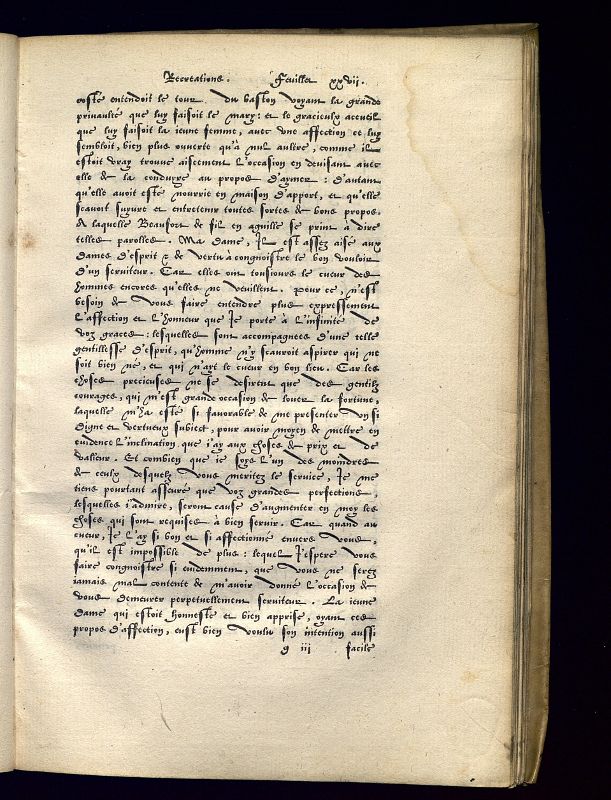 Recreations. Feuillet xxvii.
costé entendoit le tour. Du baston voyant la grande
privaulté que luy faisoit le mary: et le gracieulx accueil
que luy faisoit la ieune femme, avec une affection ce luy
sembloit, bien plus ouverte qu'à nul aultre, comme il
estoit vray trouve aiseement l'occasion en devisant avec
elle de la conduyre au propos d'aymer: d'autant
qu'elle avoit esté nourrie en maison d'apport, et qu'elle
scavoit suyvre et entretenir toutes sortes de bons propos.
A laquelle Beaufort de fil en aguille se print à dire
telles parolles. Ma dame, Il est assez aisé aux
dames d'esprit & de vertu à congnoistre le bon vouloir
d'un serviteur. Car elles ont tousiours le cueur des
hommes encores qu'elles ne veuillent. Pour ce, n'est
besoin de vous faire entendre plus expressement
l'affection et l'honneur que Je porte à l'infinité de
voz graces: lesquelles sont accompagnees d'une telle
gentillesse d'esprit, qu'homme n'y scauroit aspirer qui ne
soit bien né, et qui n'ayt le cueur en bon lieu. Car les
choses precieuses ne se desirent que des gentilz
courages, qui m'est grande occasion de louer la fortune,
laquelle m'ha esté si favorable de me presenter un si
digne et vertueux subiect, pour avoir moyen de mettre en
evidence l'inclination que i'ay aux choses de prix et de
valeur. Et combien que ie soye l'un des moindres
de ceulx desquelz vous meritez le service, Je me
tiens pourtant asseuré que voz grandes perfections,
lesquelles i'admire, seront cause d'augmenter en moy les
choses qui sont requises à bien servir. Car quand au
cueur, Je l'ay si bon et si affectionné envers vous,
qu'il est impossible de plus: lequel J'espere vous
faire congnoistre si evidemment, que vous ne serez
iamais mal contente de m'avoir donné l'occasion de
vous demeurer perpetuellement serviteur. La ieune
dame qui estoit honneste et bien apprise, oyant ces
propos d'affection, eust bien voulu son intention aussi
g iii facile